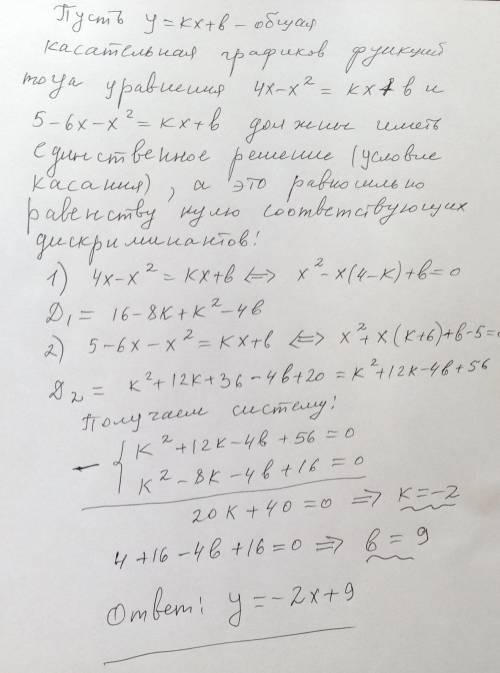 Пусть y = kx+b – общая
касательная графиков функций
тогда уравнения 4x-x² = kx+b и
5-6x-x² = kx+b должны иметь
единственное решение (условие
касания), а это равносильно
равенству нулю соответствующих
дискриминантов!
1) 4x-x² = kx+b ⇔ x²-x(4-k)+b=0
D₁ = 16-8k+k²-4b
2) 5-6x-x² = kx+b ⇔ x²+x(k+6)+b-5=0
D₂ = k²+12k+36-4b+20 = k²+12k-4b+56
Получаем систему!
- { k²+12k-4b+56=0
k²-8k-4b+16=0
20k+40=0 ⇒ k=-2
4+16-4b+16=0 ⇒ b=9
Ответ! y=-2x+9